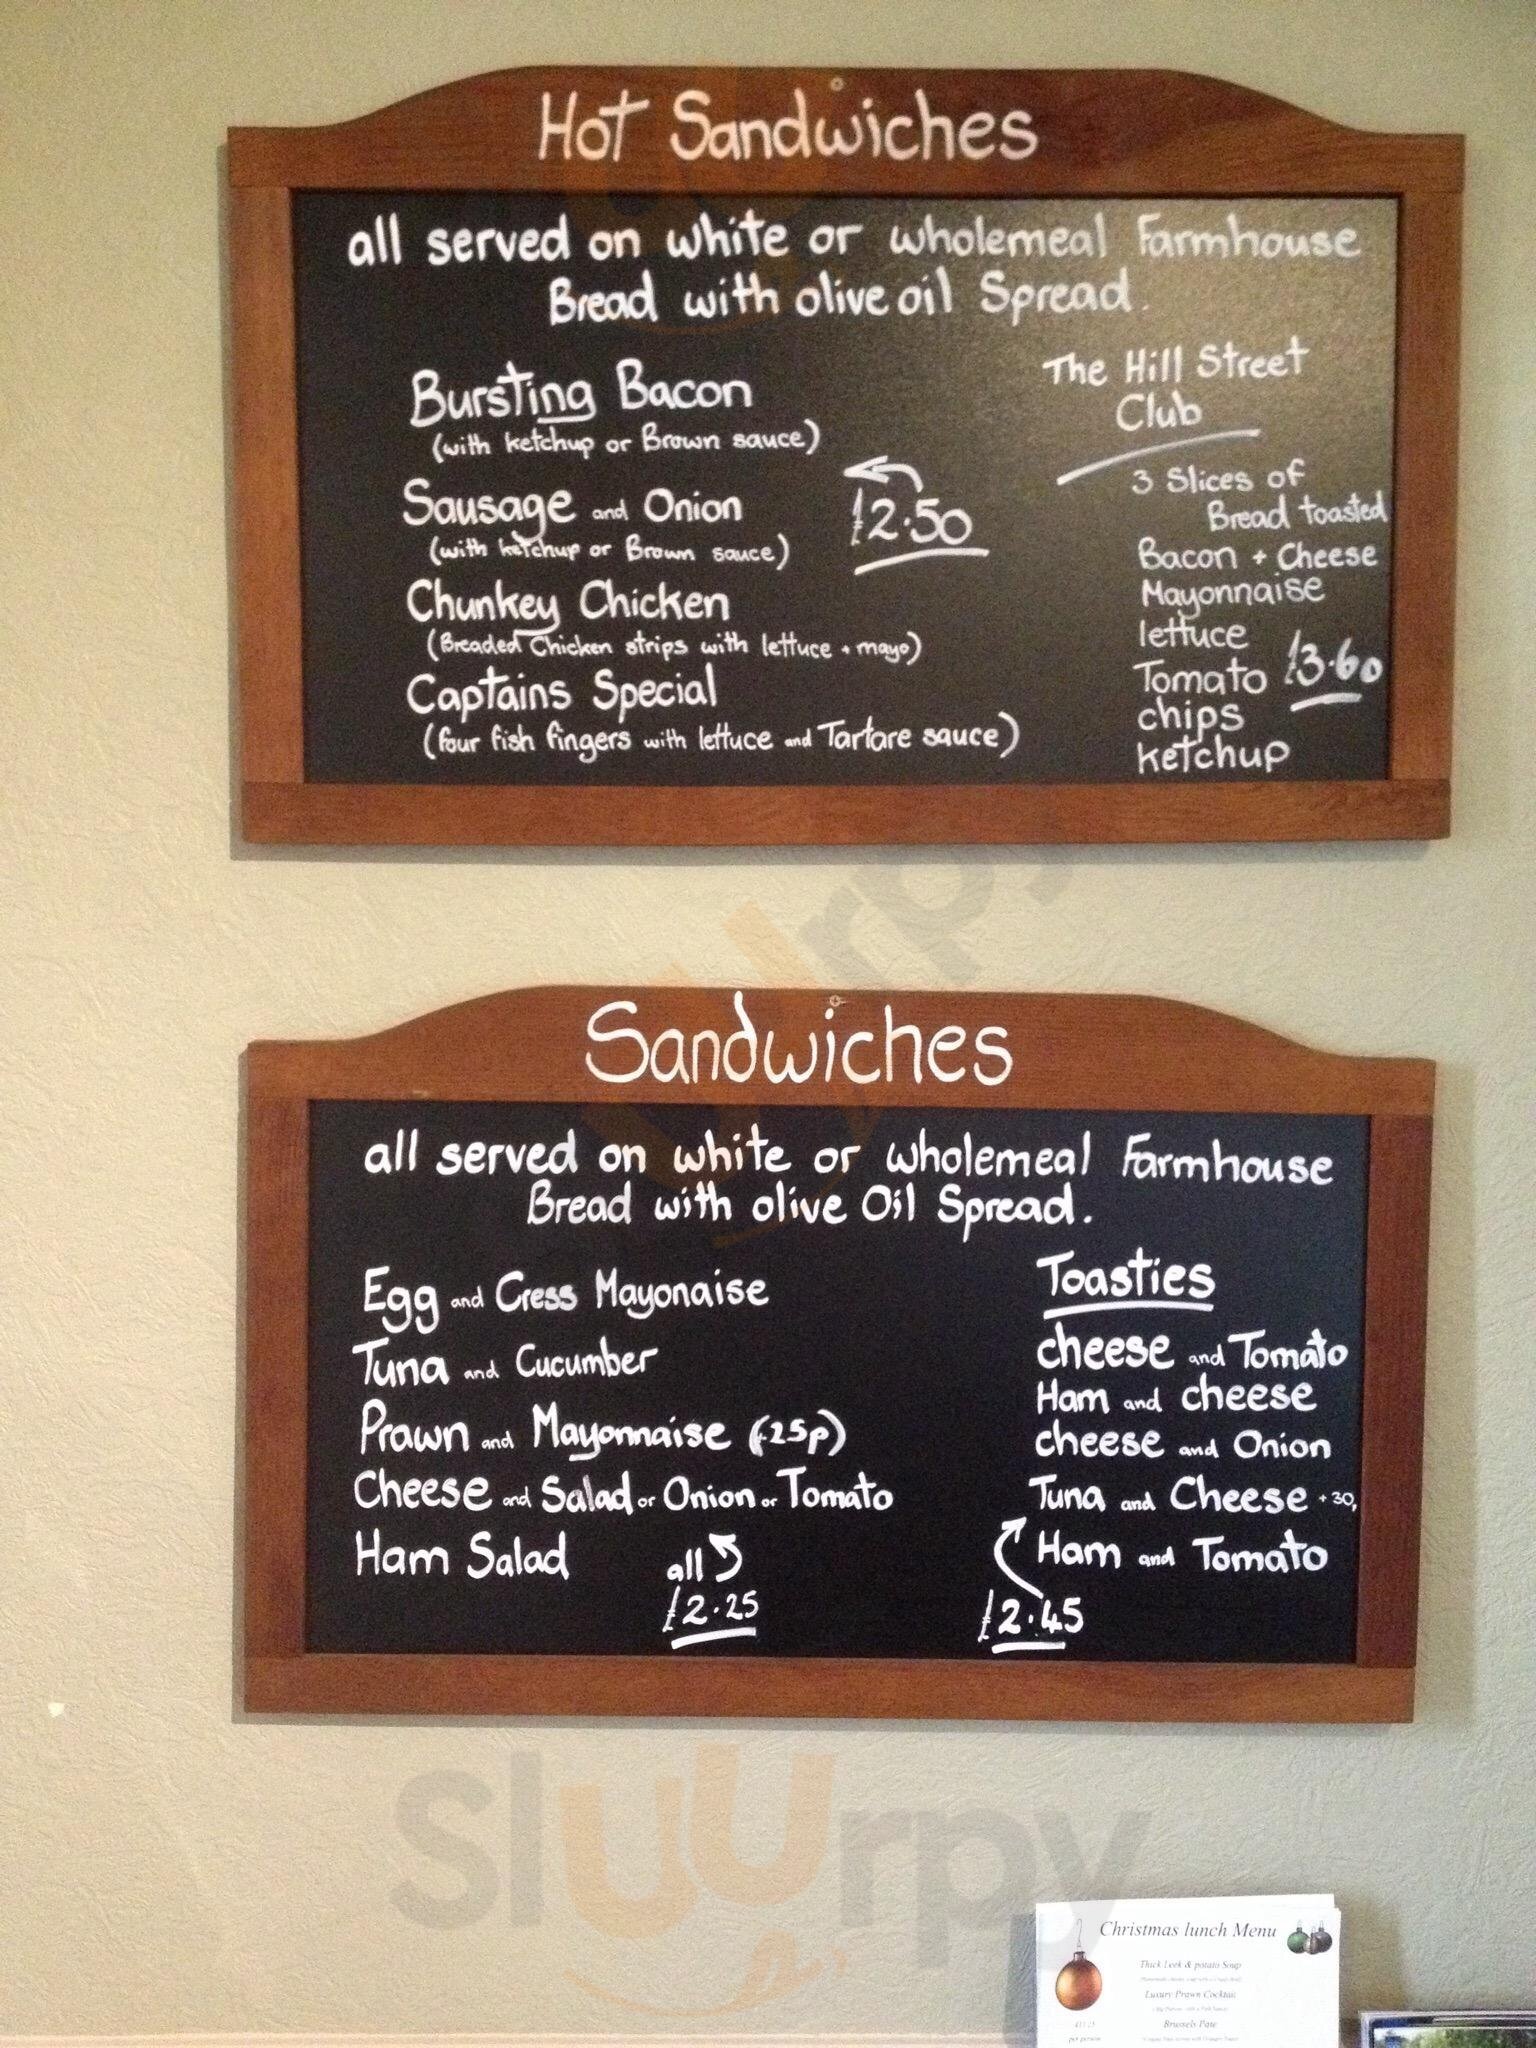 Hot Sandwiches
all served on white or wholemeal Farmhouse
Bread with olive oil Spread.
Bursting Bacon
(with ketchup or Brown sauce)
Sausage and Onion
(with ketchup or Brown sauce)
£2.50
Chunkey Chicken
(Breaded Chicken strips with lettuce + mayo)
Captains Special
(four fish fingers with lettuce and Tartare sauce)
The Hill Street
Club
3 Slices of
Bread toasted
Bacon + Cheese
Mayonnaise
lettuce
Tomato £3.60
chips
ketchup
Sandwiches
all served on white or wholemeal Farmhouse
Bread with olive Oil Spread.
Egg and Cress Mayonaise
Tuna and Cucumber
Prawn and Mayonnaise (+25p)
Cheese and Salad or Onion or Tomato
Ham Salad
all
£2.25
Toasties
cheese and Tomato
Ham and cheese
cheese and Onion
Tuna and Cheese +30
Ham and Tomato
£2.45
Sluurpy
Christmas lunch Menu
Thick Leek & potato Soup
Luxury Prawn Cocktail
Brussels Pate
per person